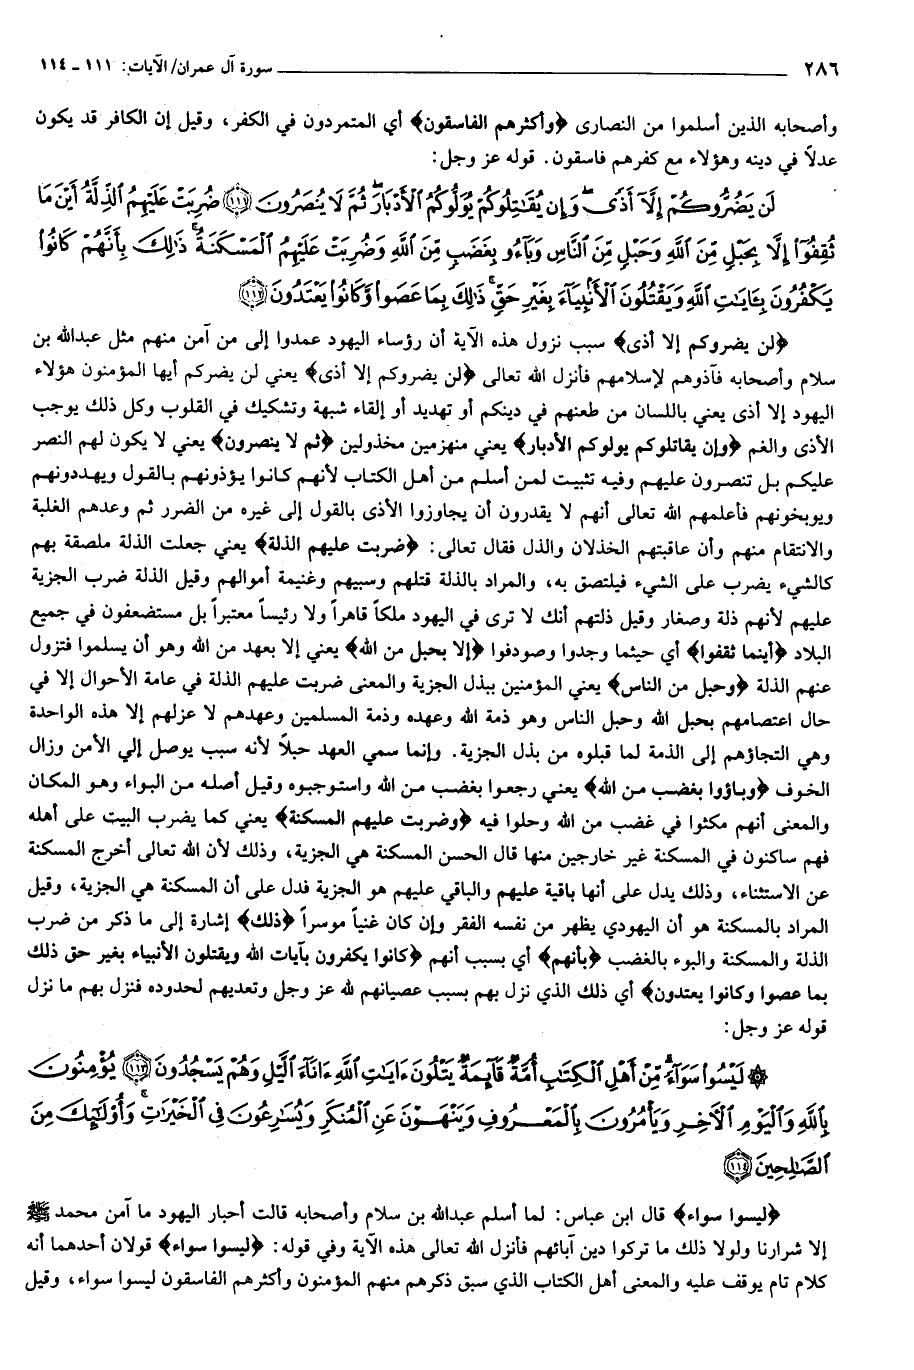 ٢٨٦ سورة آل عمران/ الآيات: ١١١ - ١١٤
وأصحابه الذين أسلموا من النصارى ﴿وأكثرهم الفاسقون﴾ أي المتمردون في الكفر، وقيل إن الكافر قد يكون
عدلاً في دينه وهؤلاء مع كفرهم فاسقون. قوله عز وجل:
لَن يَضُرُّوكُمْ إِلَّآ أَذًى ۖ وَإِن يُقَٰتِلُوكُمْ يُوَلُّوكُمُ ٱلْأَدْبَارَ ثُمَّ لَا يُنصَرُونَ ﴿١١١﴾ ضُرِبَتْ عَلَيْهِمُ ٱلذِّلَّةُ أَيْنَ مَا
ثُقِفُوٓا۟ إِلَّا بِحَبْلٍ مِّنَ ٱللَّهِ وَحَبْلٍ مِّنَ ٱلنَّاسِ وَبَآءُو بِغَضَبٍ مِّنَ ٱللَّهِ وَضُرِبَتْ عَلَيْهِمُ ٱلْمَسْكَنَةُ ۚ ذَٰلِكَ بِأَنَّهُمْ كَانُوا۟
يَكْفُرُونَ بِـَٔايَٰتِ ٱللَّهِ وَيَقْتُلُونَ ٱلْأَنۢبِيَآءَ بِغَيْرِ حَقٍّ ۚ ذَٰلِكَ بِمَا عَصَوا۟ وَّكَانُوا۟ يَعْتَدُونَ ﴿١١٢﴾
﴿لن يضروكم إلا أذى﴾ سبب نزول هذه الآية أن رؤساء اليهود عمدوا إلى من آمن منهم مثل عبدالله بن
سلام وأصحابه فآذوهم لإسلامهم فأنزل الله تعالى ﴿لن يضروكم إلا أذى﴾ يعني لن يضركم أيها المؤمنون هؤلاء
اليهود إلا أذى يعني باللسان من طعنهم في دينكم أو تهديد أو إلقاء شبهة وتشكيك في القلوب وكل ذلك يوجب
الأذى والغم ﴿وإن يقاتلوكم يولوكم الأدبار﴾ يعني منهزمين مخذولين ﴿ثم لا ينصرون﴾ يعني لا يكون لهم النصر
عليكم بل تنصرون عليهم وفيه تثبيت لمن أسلم من أهل الكتاب لأنهم كانوا يؤذونهم بالقول ويهددونهم
ويوبخونهم فأعلمهم الله تعالى أنهم لا يقدرون أن يجاوزوا الأذى بالقول إلى غيره من الضرر ثم وعدهم الغلبة
والانتقام منهم وأن عاقبتهم الخذلان والذل فقال تعالى: ﴿ضربت عليهم الذلة﴾ يعني جعلت الذلة ملصقة بهم
كالشيء يضرب على الشيء فيلتصق به، والمراد بالذلة قتلهم وسبيهم وغنيمة أموالهم وقيل الذلة ضرب الجزية
عليهم لأنهم ذلة وصغار وقيل ذلتهم أنك لا ترى في اليهود ملكاً قاهراً ولا رئيساً معتبراً بل مستضعفون في جميع
البلاد ﴿أينما ثقفوا﴾ أي حيثما وجدوا وصودفوا ﴿إلا بحبل من الله﴾ يعني إلا بعهد من الله وهو أن يسلموا فتزول
عنهم الذلة ﴿وحبل من الناس﴾ يعني المؤمنين ببذل الجزية والمعنى ضربت عليهم الذلة في عامة الأحوال إلا في
حال اعتصامهم بحبل الله وحبل الناس وهو ذمة الله وعهده وذمة المسلمين وعهدهم لا عزلهم إلا هذه الواحدة
وهي التجاؤهم إلى الذمة لما قبلوه من بذل الجزية. وإنما سمي العهد حبلاً لأنه سبب يوصل إلي الأمن وزال
الخوف ﴿وباؤوا بغضب من الله﴾ يعني رجعوا بغضب من الله واستوجبوه وقيل أصله من البواء وهو المكان
والمعنى أنهم مكثوا في غضب من الله وحلوا فيه ﴿وضربت عليهم المسكنة﴾ يعني كما يضرب البيت على أهله
فهم ساكنون في المسكنة غير خارجين منها قال الحسن المسكنة هي الجزية، وذلك لأن الله تعالى أخرج المسكنة
عن الاستثناء، وذلك يدل على أنها باقية عليهم والباقي عليهم هو الجزية فدل على أن المسكنة هي الجزية، وقيل
المراد بالمسكنة هو أن اليهودي يظهر من نفسه الفقر وإن كان غنياً موسراً ﴿ذلك﴾ إشارة إلى ما ذكر من ضرب
الذلة والمسكنة والبوء بالغضب ﴿بأنهم﴾ أي بسبب أنهم ﴿كانوا يكفرون بآيات الله ويقتلون الأنبياء بغير حق ذلك
بما عصوا وكانوا يعتدون﴾ أي ذلك الذي نزل بهم بسبب عصيانهم لله عز وجل وتعديهم لحدوده فنزل بهم ما نزل
قوله عز وجل:
۞ لَيْسُوا۟ سَوَآءً ۗ مِّنْ أَهْلِ ٱلْكِتَٰبِ أُمَّةٌ قَآئِمَةٌ يَتْلُونَ ءَايَٰتِ ٱللَّهِ ءَانَآءَ ٱلَّيْلِ وَهُمْ يَسْجُدُونَ ﴿١١٣﴾ يُؤْمِنُونَ
بِٱللَّهِ وَٱلْيَوْمِ ٱلْءَاخِرِ وَيَأْمُرُونَ بِٱلْمَعْرُوفِ وَيَنْهَوْنَ عَنِ ٱلْمُنكَرِ وَيُسَٰرِعُونَ فِى ٱلْخَيْرَٰتِ ۚ وَأُو۟لَٰٓئِكَ مِنَ
ٱلصَّٰلِحِينَ ﴿١١٤﴾
﴿ليسوا سواء﴾ قال ابن عباس: لما أسلم عبدالله بن سلام وأصحابه قالت أحبار اليهود ما آمن محمد ﷺ
إلا شرارنا ولولا ذلك ما تركوا دين آبائهم فأنزل الله تعالى هذه الآية وفي قوله: ﴿ليسوا سواء﴾ قولان أحدهما أنه
كلام تام يوقف عليه والمعنى أهل الكتاب الذي سبق ذكرهم منهم المؤمنون وأكثرهم الفاسقون ليسوا سواء، وقيل